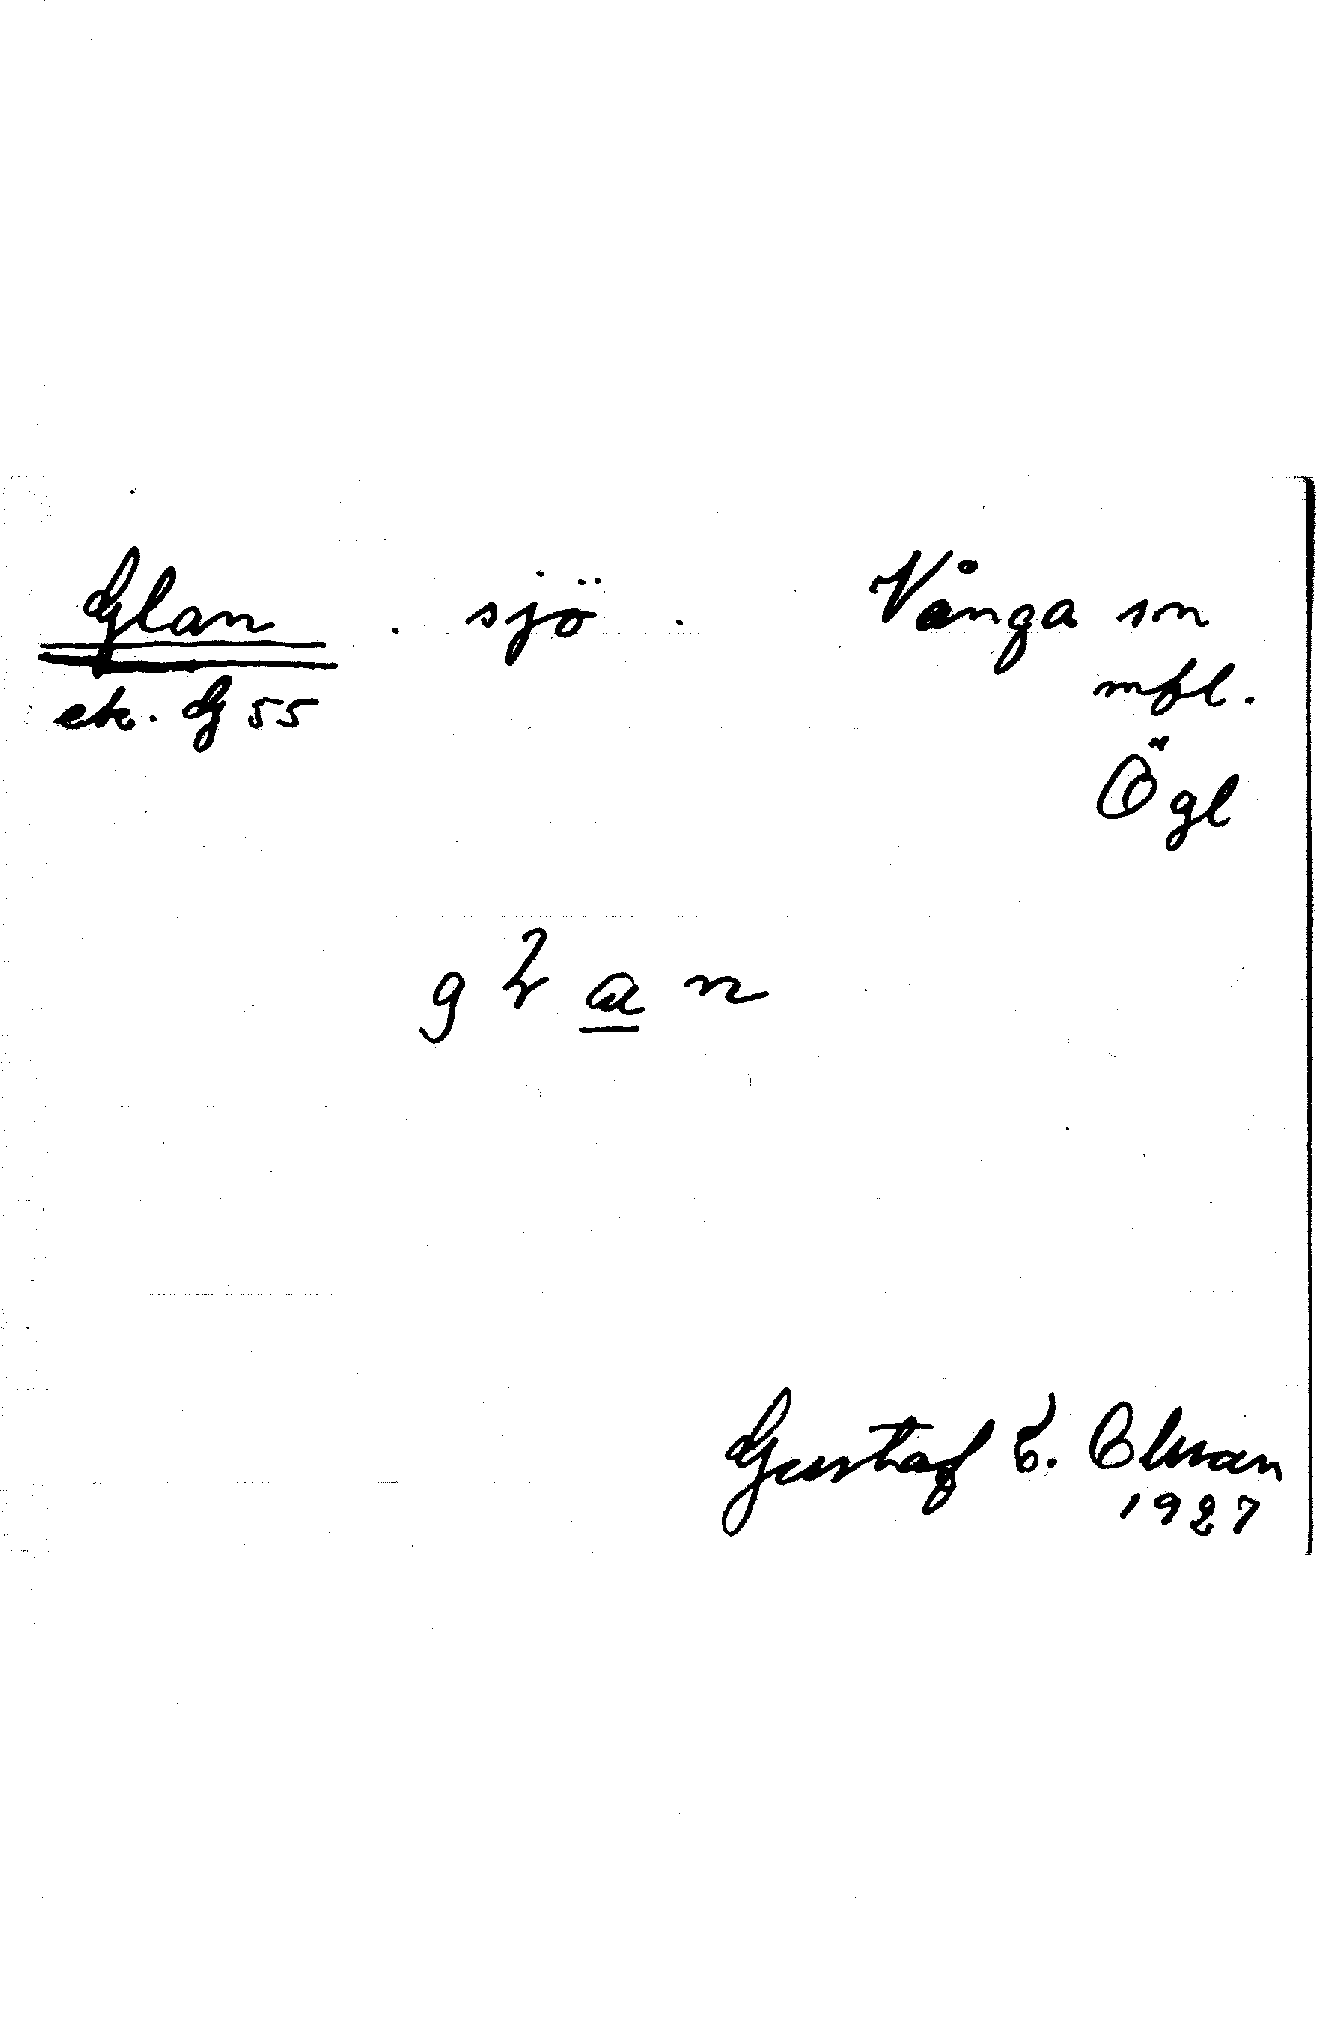 Glan . sjö . Vånga sn
ek. G 55 mfl.
Ögl
gɫan
Gustaf T. Olsson
1927